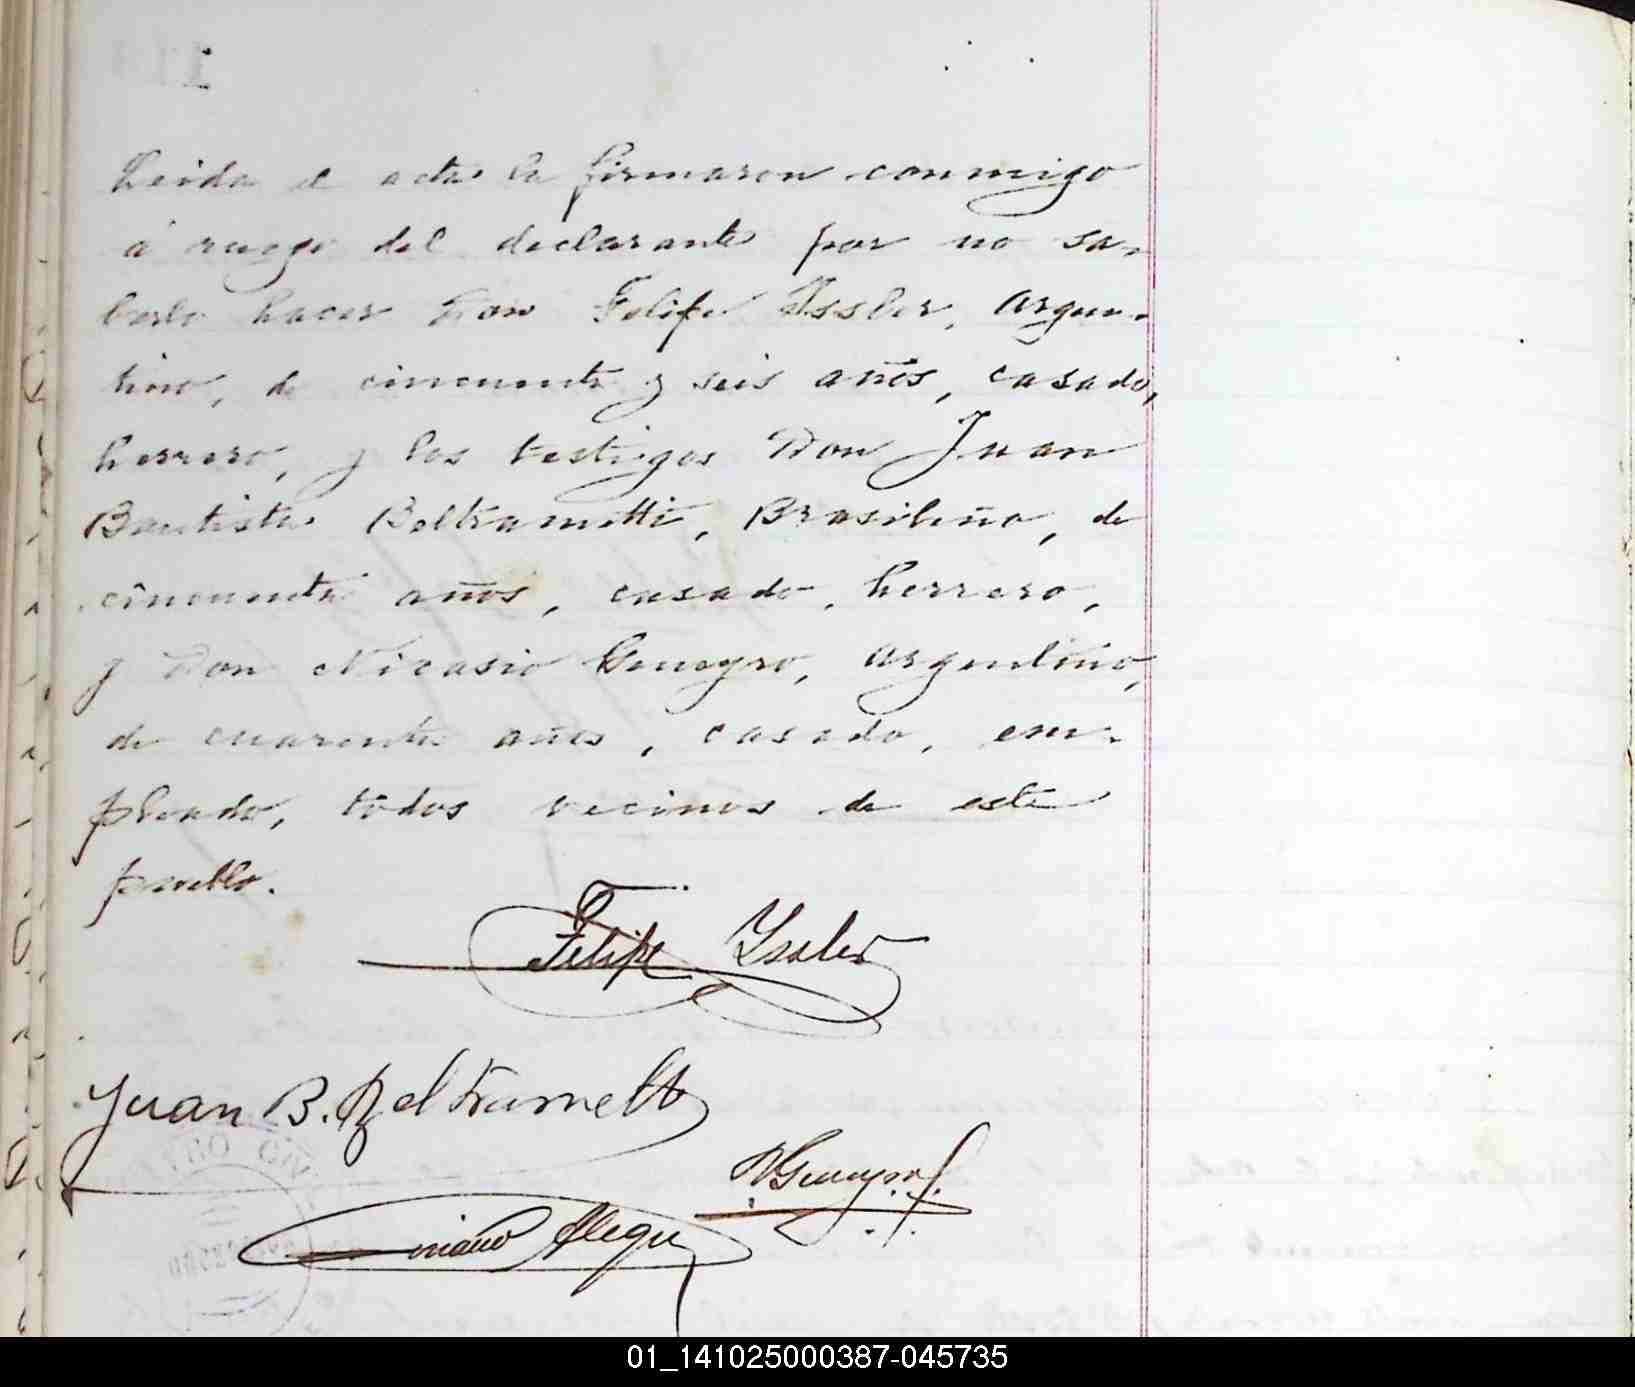 Leida el acta la firmaron conmigo
á ruego del declarante por no sa-
berlo hacer Don Felipe Issler, argen-
tino, de cincuenta y seis años, casado,
herrero, y los testigos Don Juan
Bautista Beltrametti, Brasileño, de
cincuenta años, casado, herrero,
y Don Nicasio Geneyro, argentino,
de cuarenta años, casado, em-
pleado, todos vecinos de este
pueblo.
Felipe Yssler
Juan B. Beltrametti
N Geneyro
Alegre
01_141025000387-045735